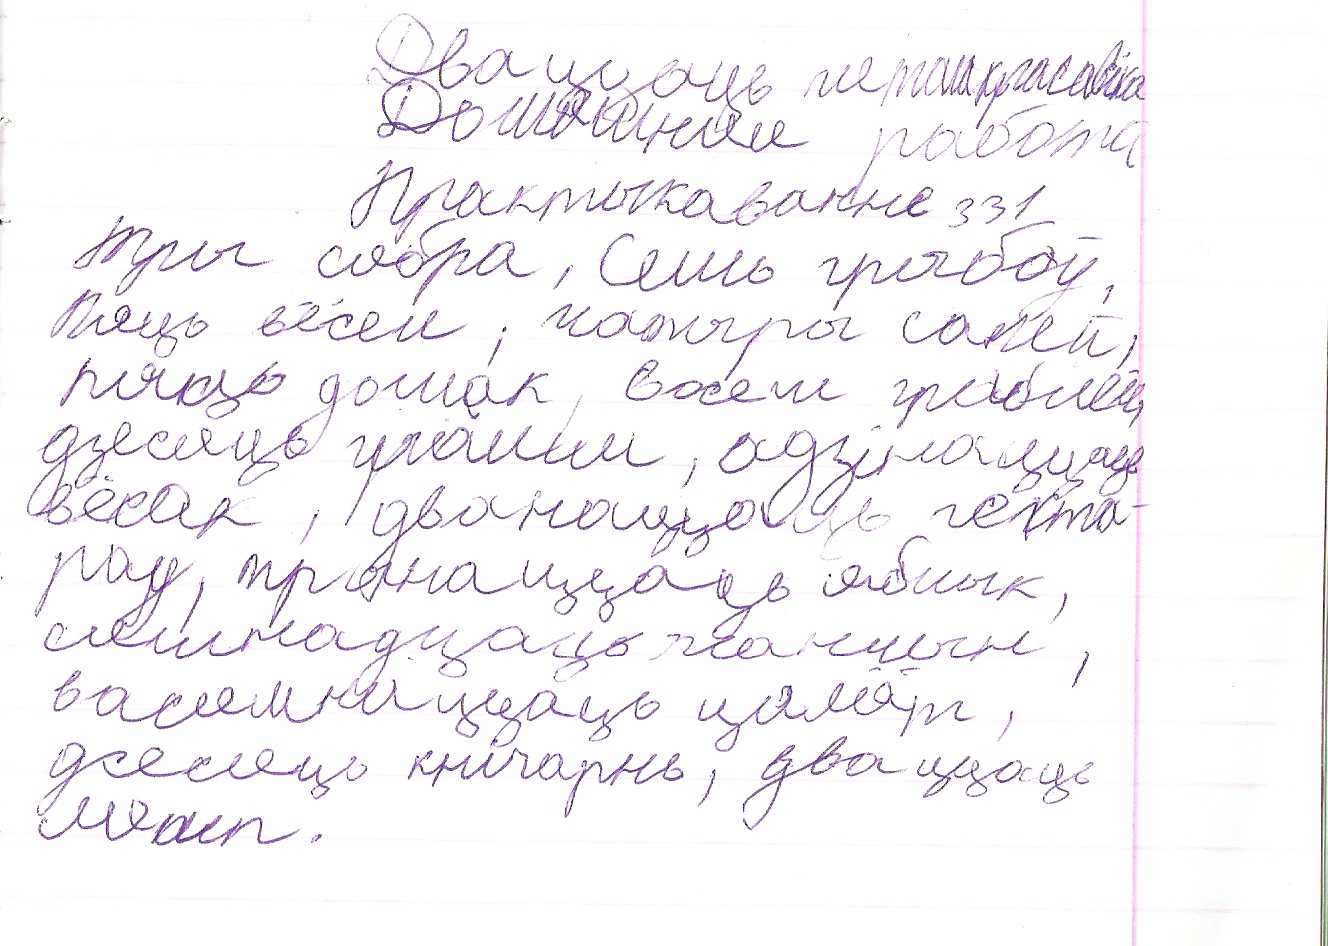 Дваццаць пятага красавіка
Дамашняя работа
Практыкаванне 331
Тры сябра, Сем грыбоў,
Пяць вёсен, чатыры
пяць дошак, восем
дзесяць адзінаццаць
вёсак, дванаццаць гекта-
раў, трынаццаць яблык,
семнадцаць жанчын,
васемнаццаць
дзесяць кнігарнь, дваццаць